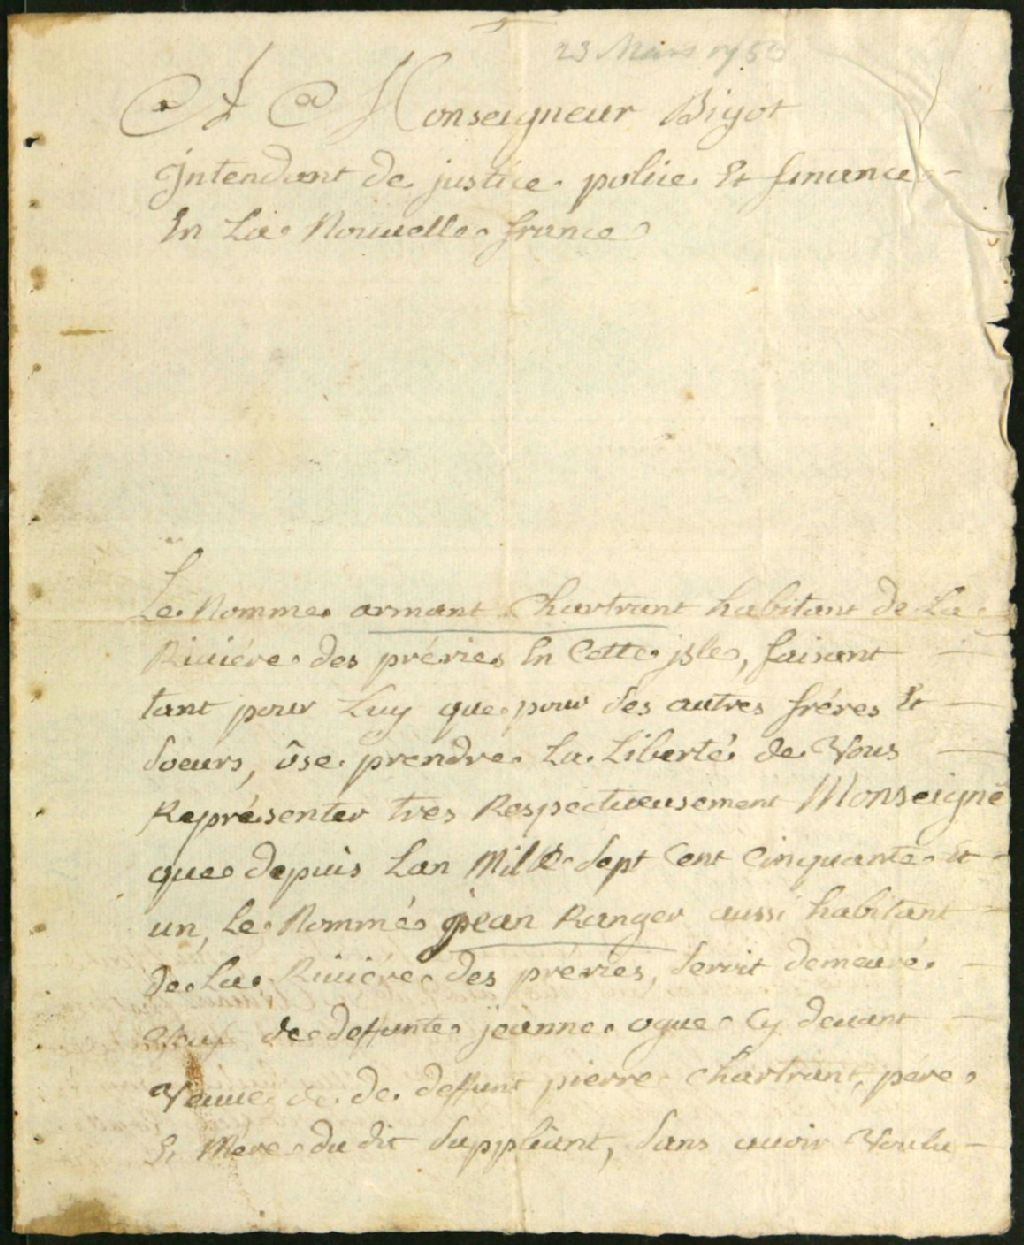 23 Mars 1753
A Monseigneur Bigot
Jntendant de justice police Et finance
En La Nouuelle france
Le Nommé armant Chartrant habitant de La
Riuiére des préries En Cette jsle, faisant
tant pour Luy que pour ses autres fréres Et
soeurs, ôse prendre La Liberté de Vous
Représenter tres Respectueusement Monseigne
que depuis Lan Mil Sept Cent Cinquante et
un, Le Nommé jean Ranger aussi habitant
de La Riuiére des préries, seroit demeuré
veuf de deffunte jeanne ogue Cy deuant
Veuue de deffunt pierre Chartrant, pere
Et Mere du dit suppliant, sans auoir Voulu